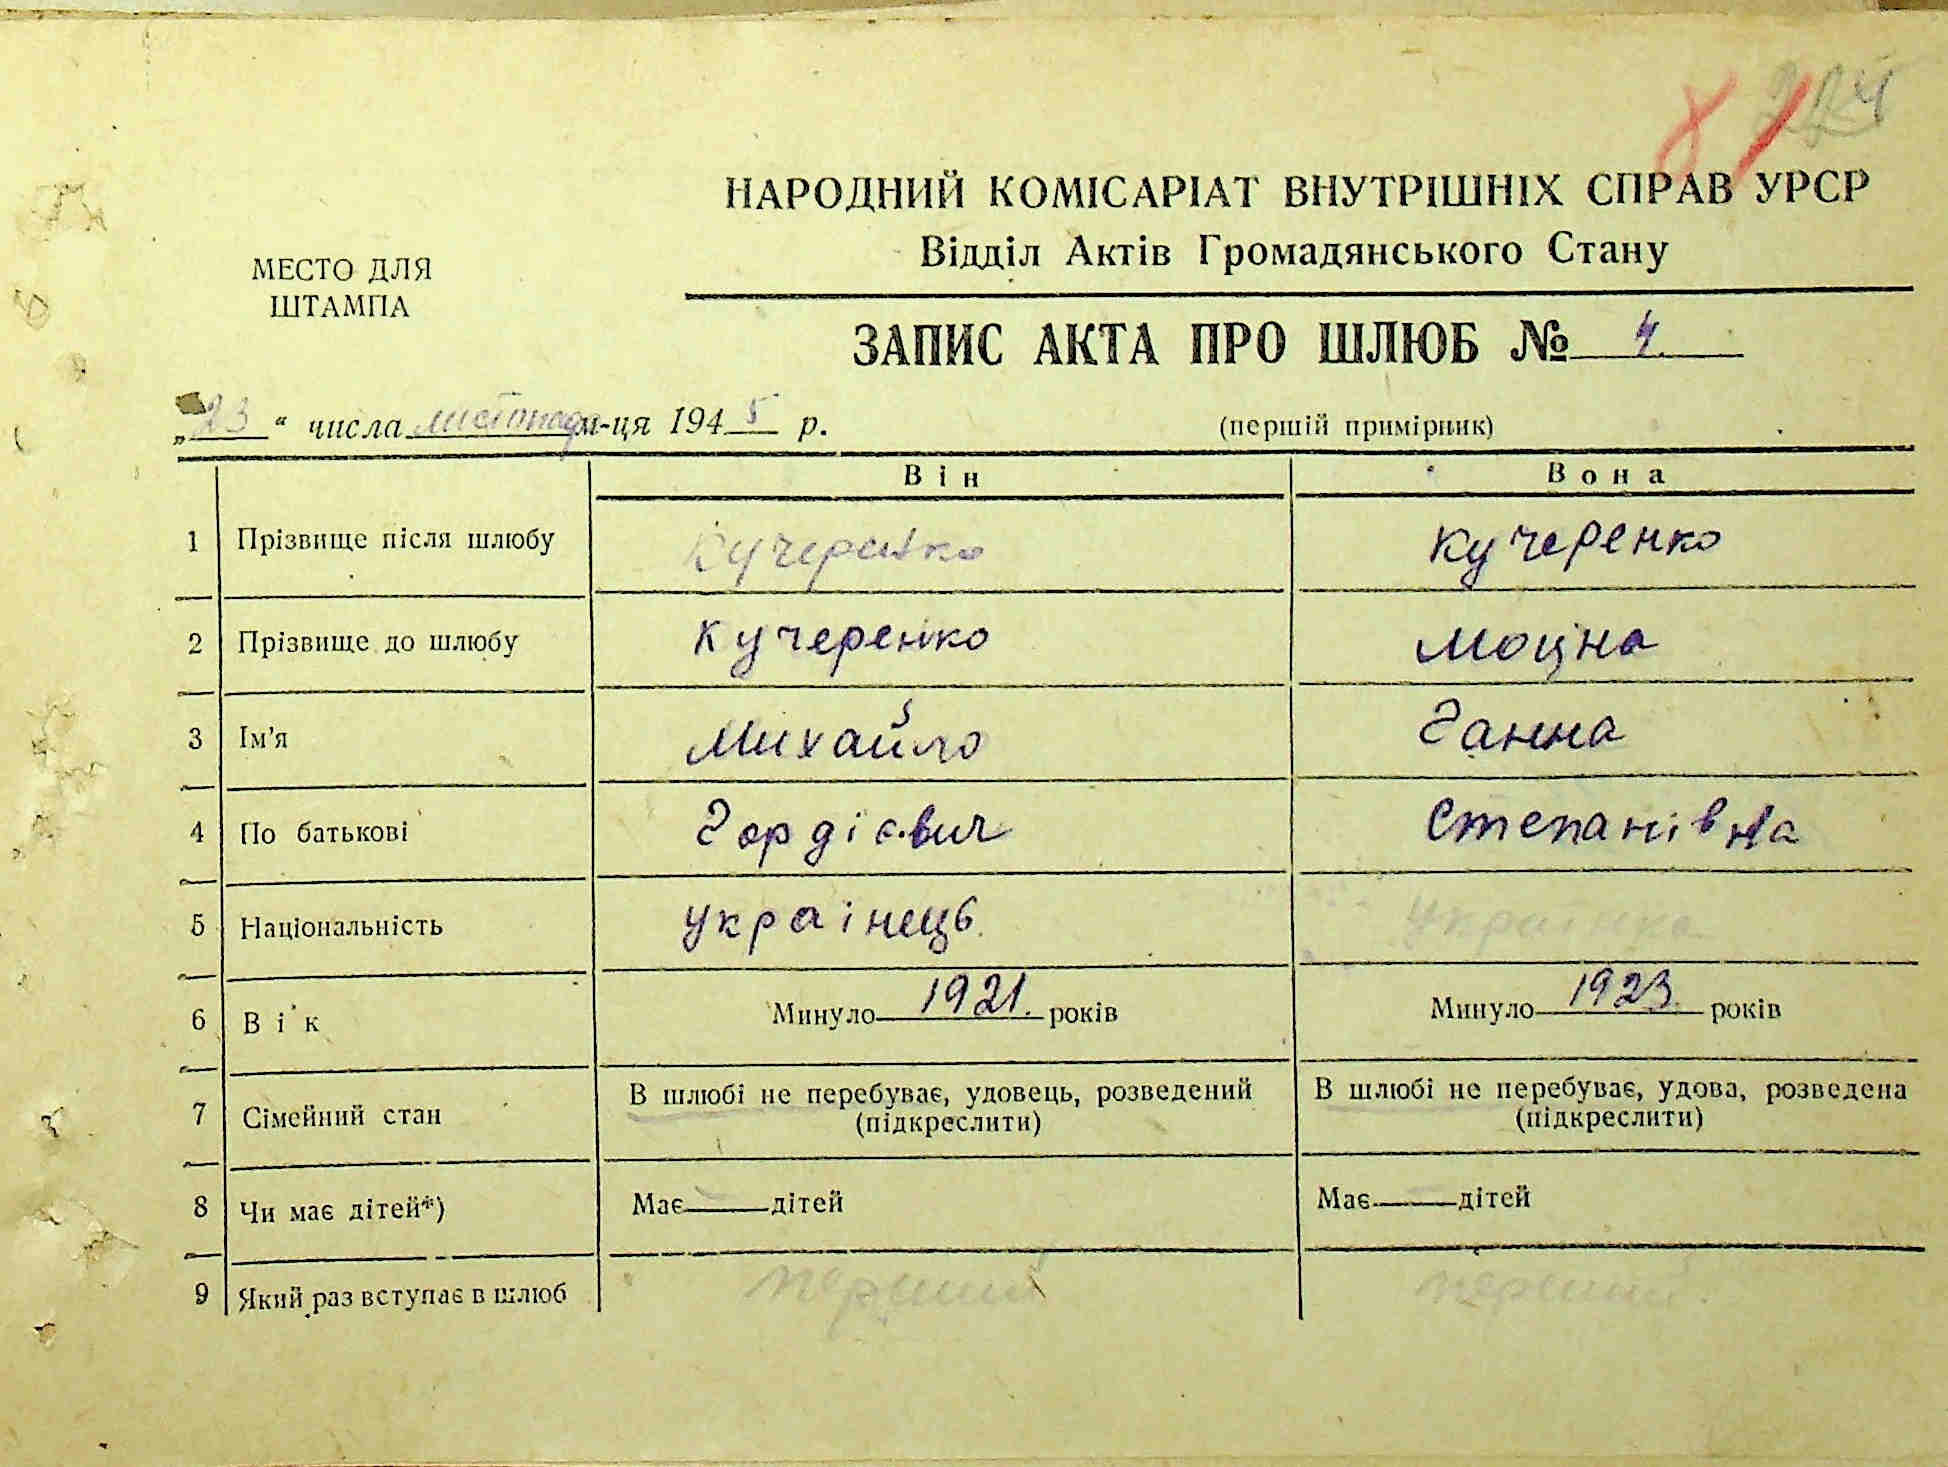 224
НАРОДНИЙ КОМІСАРІАТ ВНУТРІШНІХ СПРАВ УРСР
Відділ Актів Громадянського Стану
МЕСТО ДЛЯ
ШТАМПА
ЗАПИС АКТА ПРО ШЛЮБ № 4.
„23“ числа листопада м-ця 1945 р.
(першій примірник)
Він Вона
1 Прізвище після шлюбу Кучеренко Кучеренко
2 Прізвище до шлюбу Кучеренко Моцна
3 Ім'я Михайло Ганна
4 По батькові Гордієвич Степанівна
5 Національність українець. Українка
6 Вік Минуло 1921. років Минуло 1923. років
7 Сімейний стан В шлюбі не перебуває, удовець, розведений (підкреслити) В шлюбі не перебуває, удова, розведена (підкреслити)
8 Чи має дітей*) Має — дітей Має — дітей
9 Який раз вступає в шлюб перший перший